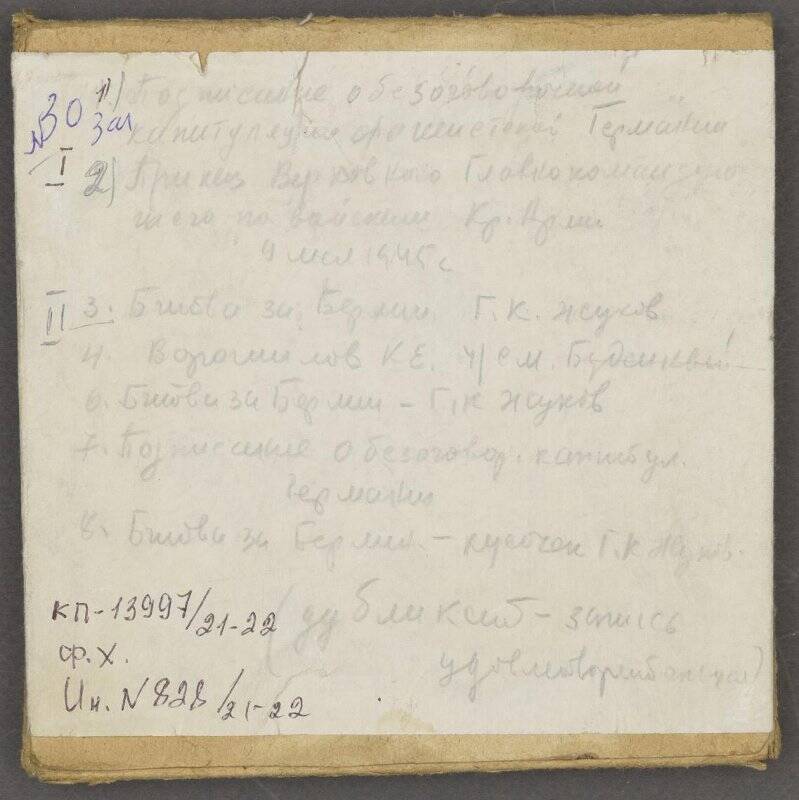 № 30
Зал
I
1) Подписание о безоговорочной
капитуляции фашистской Германии
2) Приказ Верховного Главнокомандую-
щего по войскам Кр. Арми
9 мая 1945 г
II 3. Битва за Берлин Г. К. Жуков
4. Ворошилов К Е. 4) С м. Буденный
6. Битва за Берлин – Г. К Жуков
7. Подписание о безоговор. капитул.
Германии
8. Битва за Берлин. – кусочек Г. К Жуков.
(дубликат – запись
удовлетворительная)
КП-13997/21-22
ф. X.
Ин. N 828/21-22